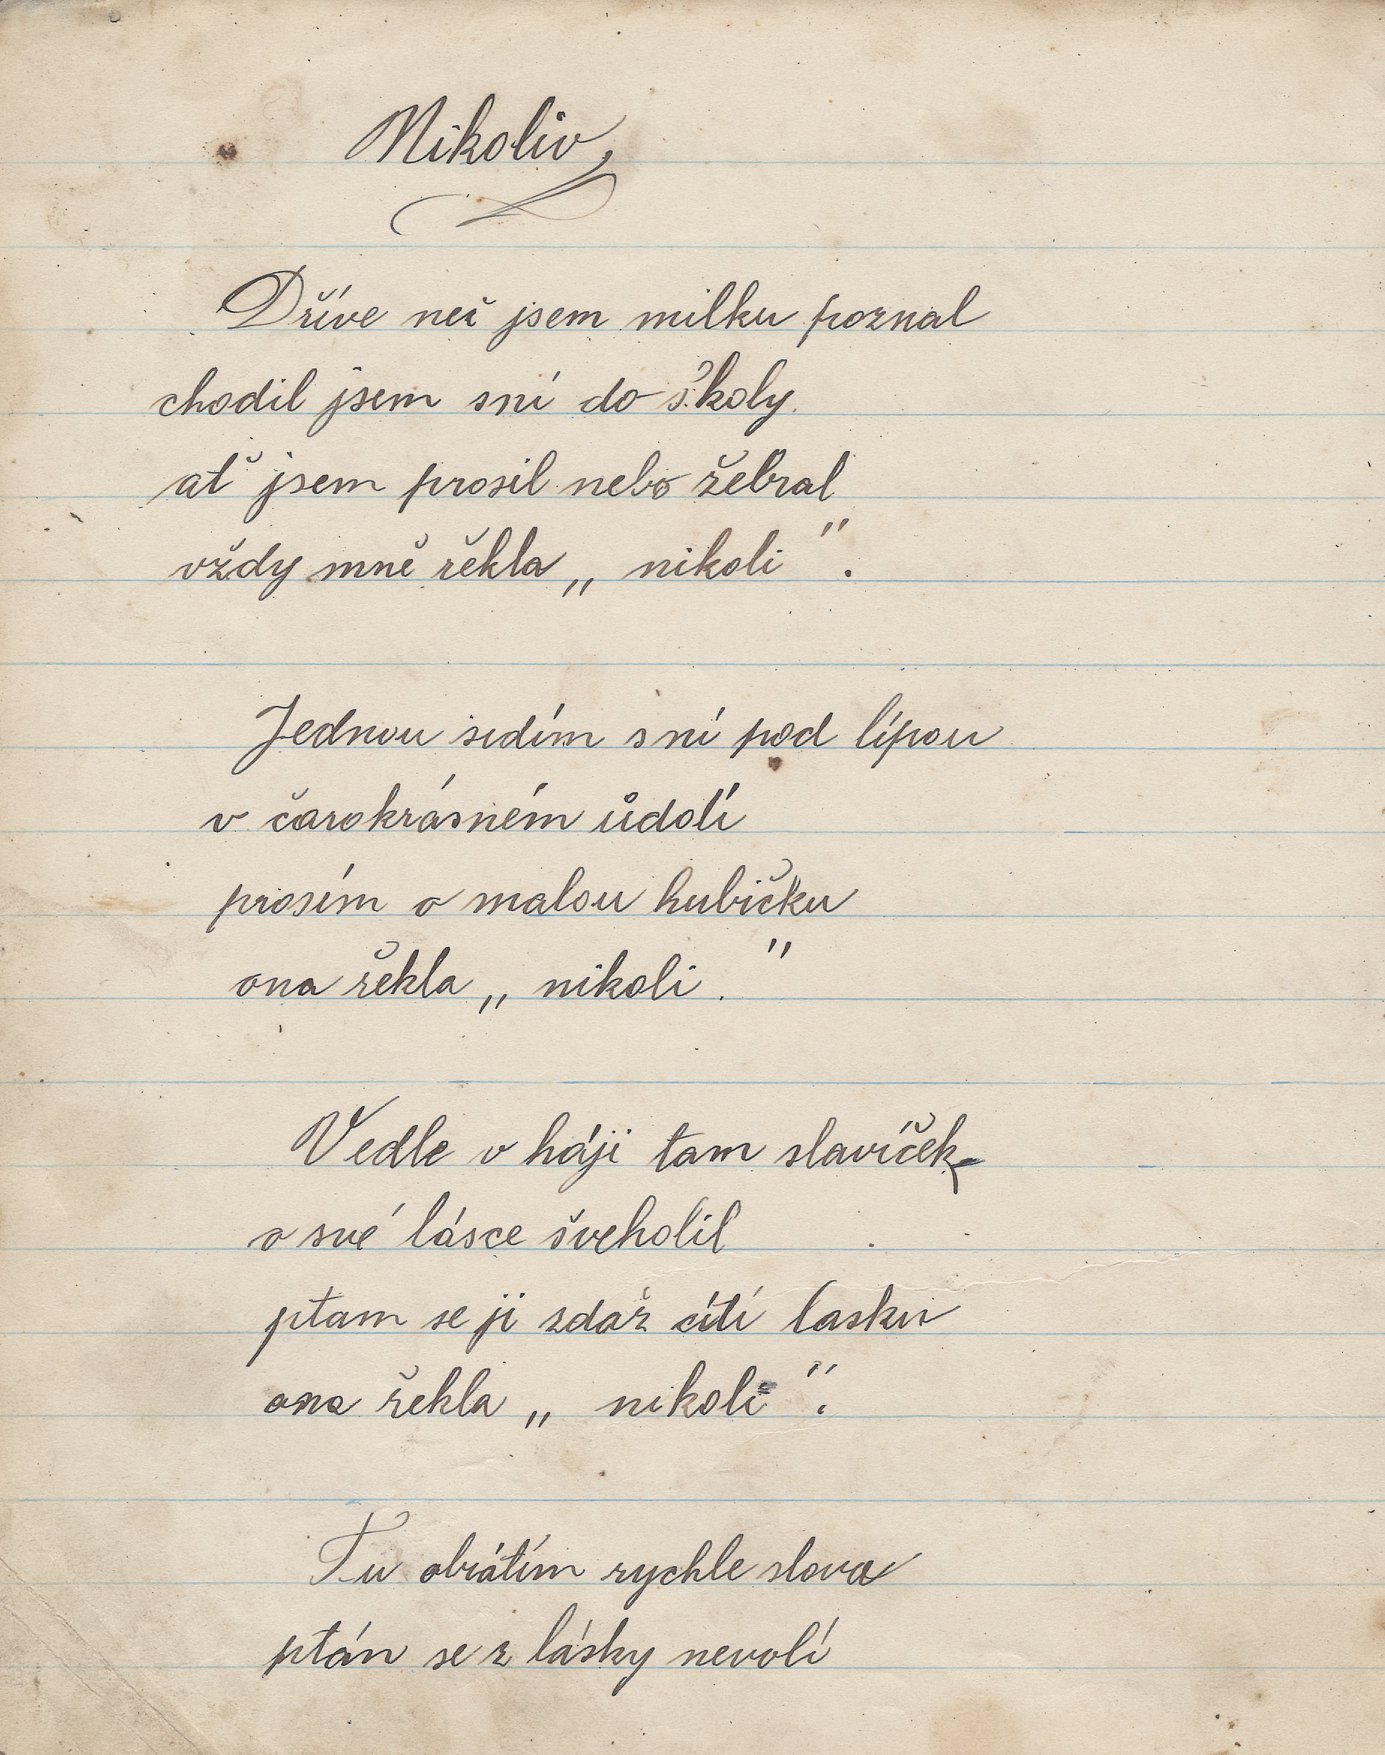 Nikoliv,
Dříve než jsem milku poznal
chodil jsem sní do školy.
ať jsem prosil nebo žebral
vždy mně řekla „ nikoli “.
Jednou sedím sní pod lípou
v čarokrásném ůdolí
prosím o malou hubičku
ona řekla „ nikoli . “
Vedle v háji tam slavíček
o své lásce šveholil
ptam se ji zdaž cítí lasku
ona řekla „ nikoli “.
Tu obrátím rychle slova
ptán se z lásky nevolí